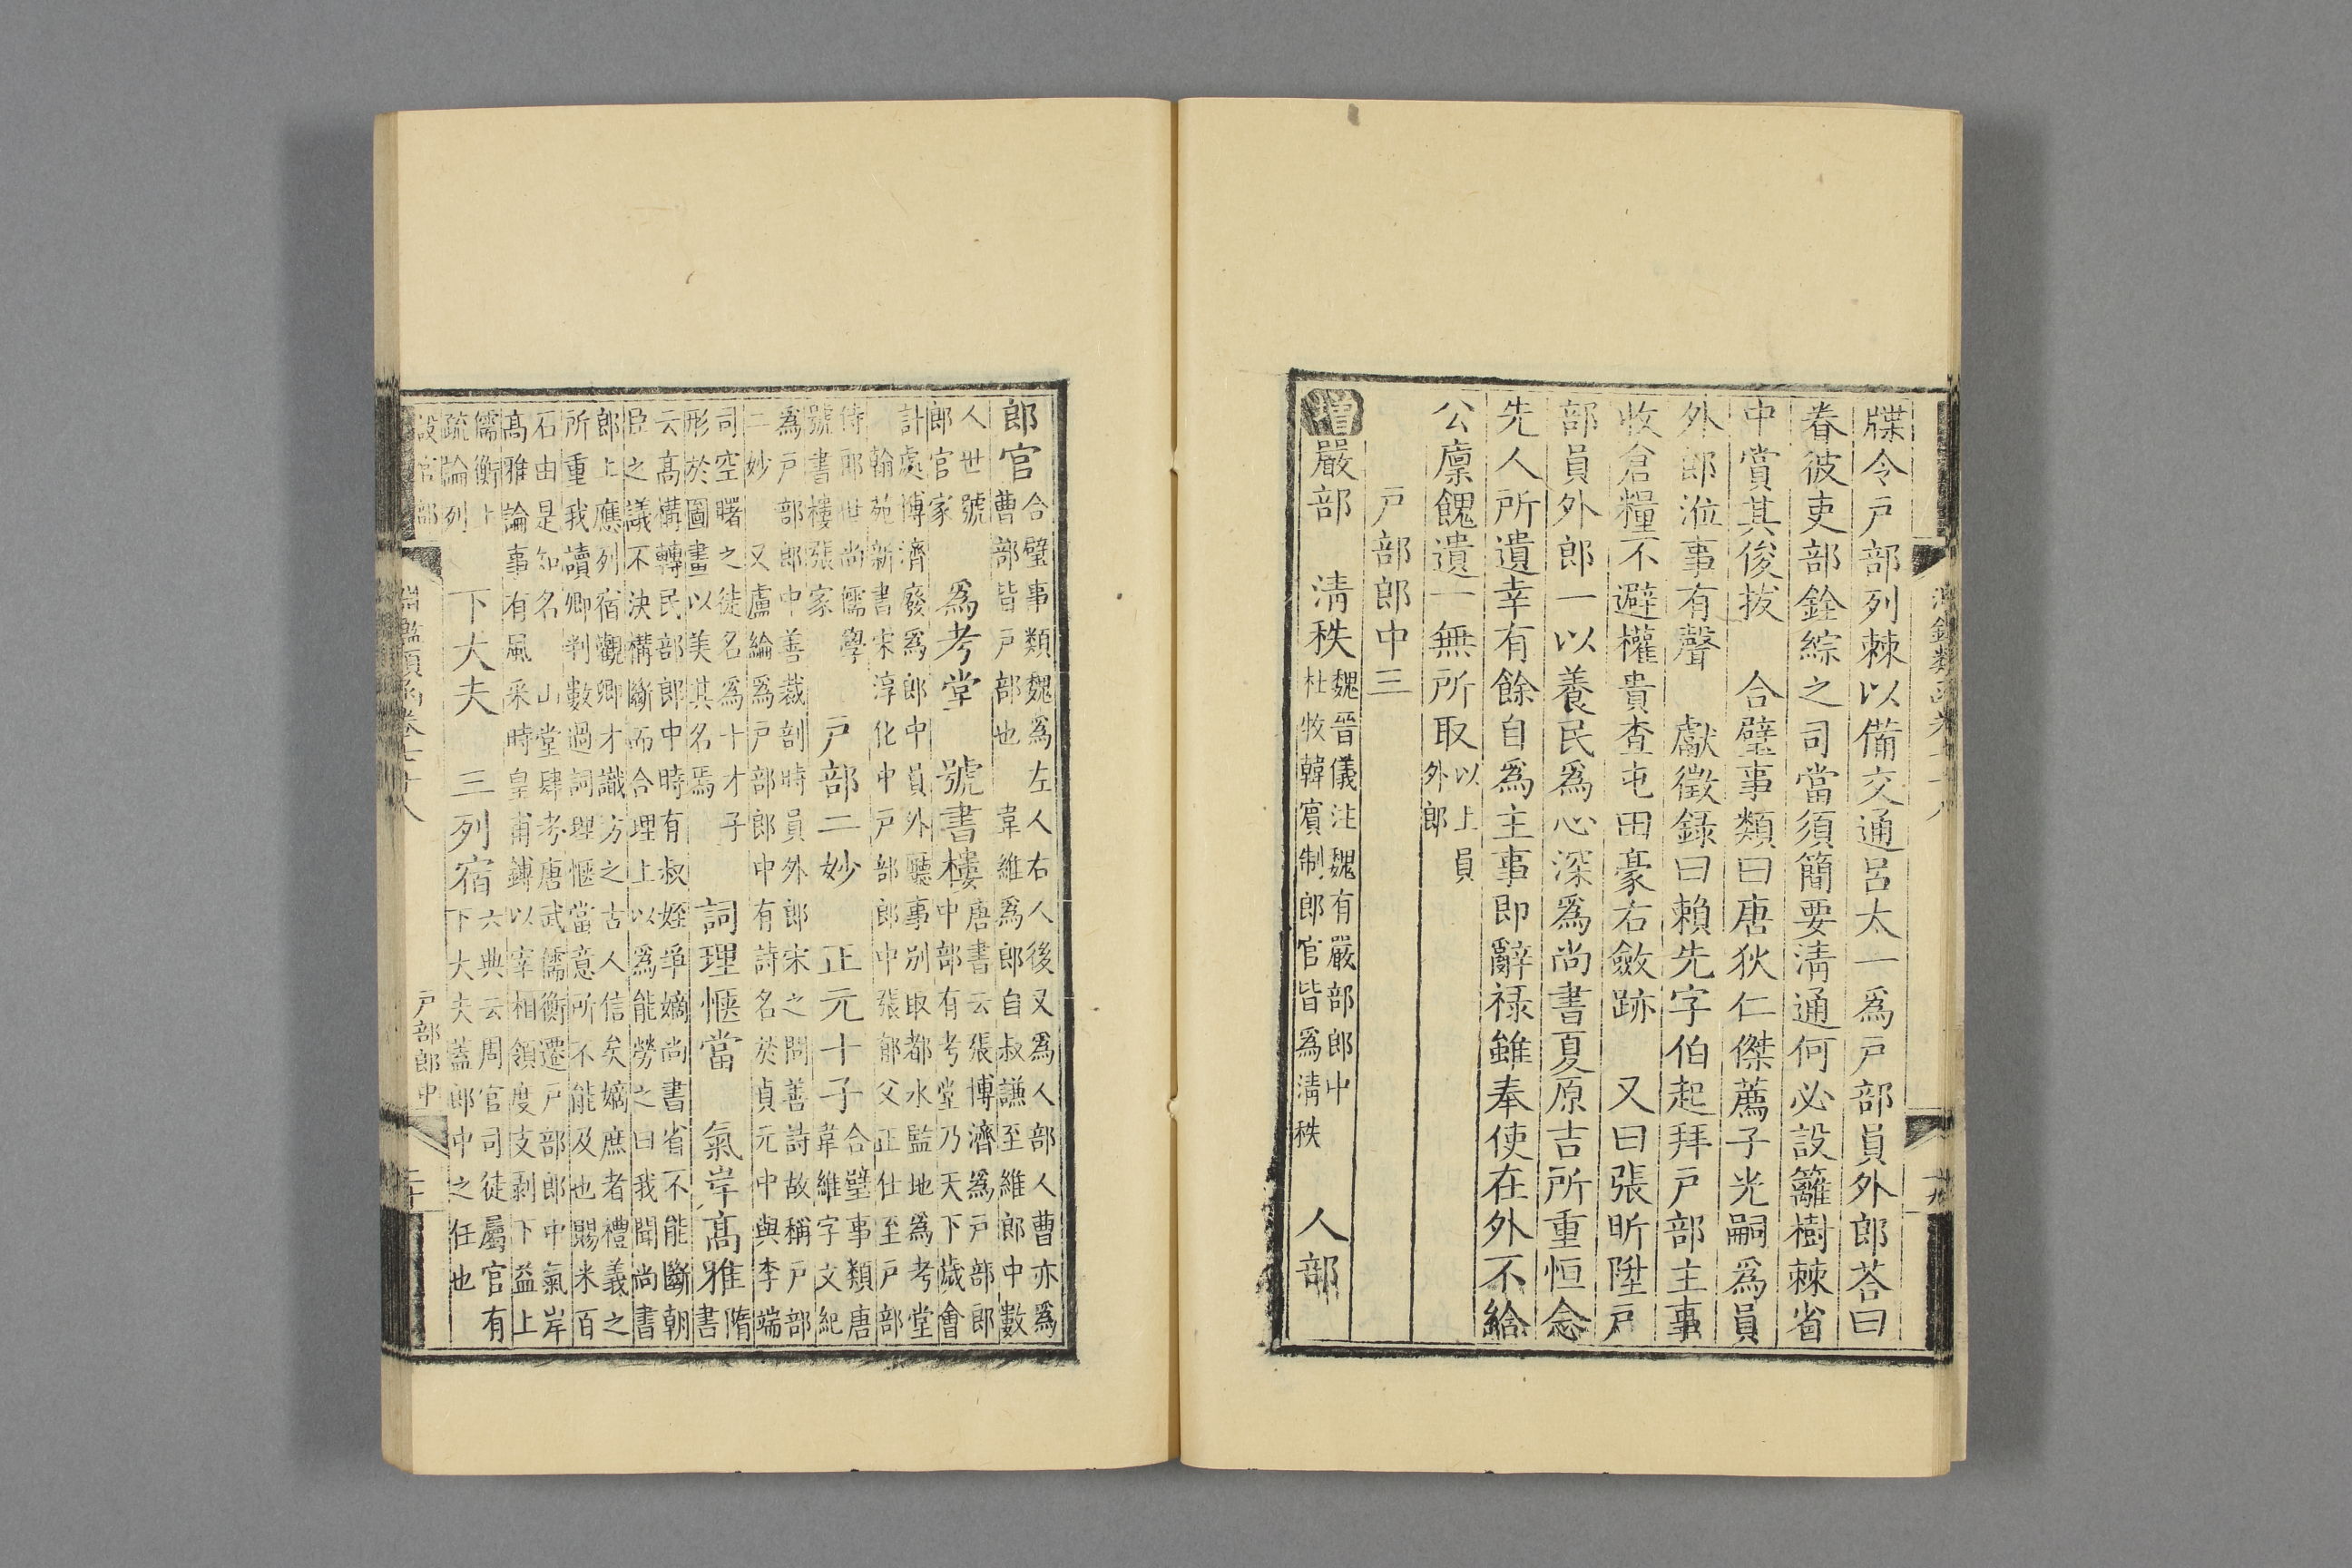 牒令戸部列棘以備交通呂太一爲戸部員外郎荅曰
眷彼吏部銓綜之司當須簡要淸通何必設籬樹棘省
中賞其俊拔　合璧事類曰唐狄仁傑薦子光嗣爲員
外郎涖事有聲　獻徵錄曰賴先字伯起拜戸部主事
收倉糧不避權貴查屯田豪右斂跡　又曰張昕陞戸
部員外郎一以養民爲心深爲尚書夏原吉所重恒念
先人所遺幸有餘自爲主事即辭祿雖奉使在外不給
公廩餽遺一無所取　以上員
外郎
戸部郎中三
增嚴部　淸秩　魏晉儀注魏有嚴部郎中
杜牧韓賓制郎官皆爲淸秩　人部
郎官　合璧事類魏爲左人右人後又爲人部人曹亦爲
曹部皆戸部也　韋維爲郎自叔謙至維郎中數
人世號
郎官家　爲考堂　號書樓　唐書云張博濟爲戸部郎
中部有考堂乃天下歲會
計處博濟廢爲郎中員外廳事別取都水監地爲考堂
翰苑新書宋淳化中戸部郎中張郁父正仕至戸部
侍郎世尚儒學
號書樓張家　戸部二妙　正元十子　合璧事類唐
韋維字文紀
爲戸部郎中善裁剖時員外郎宋之問善詩故稱戸部
二妙　又盧綸爲戸部郎中有詩名於貞元中與李端
司空曙之徒名爲十才子
形於圖畫以美其名焉　詞理愜當　氣岸高雅　隋
書
云高構轉民部郎中時有叔姪爭嫡尚書省不能斷朝
臣之議不決構斷而合理上以爲能勞之曰我聞尚書
郎上應列宿觀卿才識方之古人信矣嫡庶者禮義之
所重我讀卿判數過詞理愜當意所不能及也賜米百
石由是知名　山堂肆考唐武儒衡遷戸部郎中氣岸
高雅論事有風采時皇甫鎛以宰相領度支剥下益上
儒衡上
疏論列　下大夫　三列宿　六典云周官司徒屬官有
下大夫蓋郎中之任也
設官部　淵鑑類函卷七十八　戸部郎中　二十